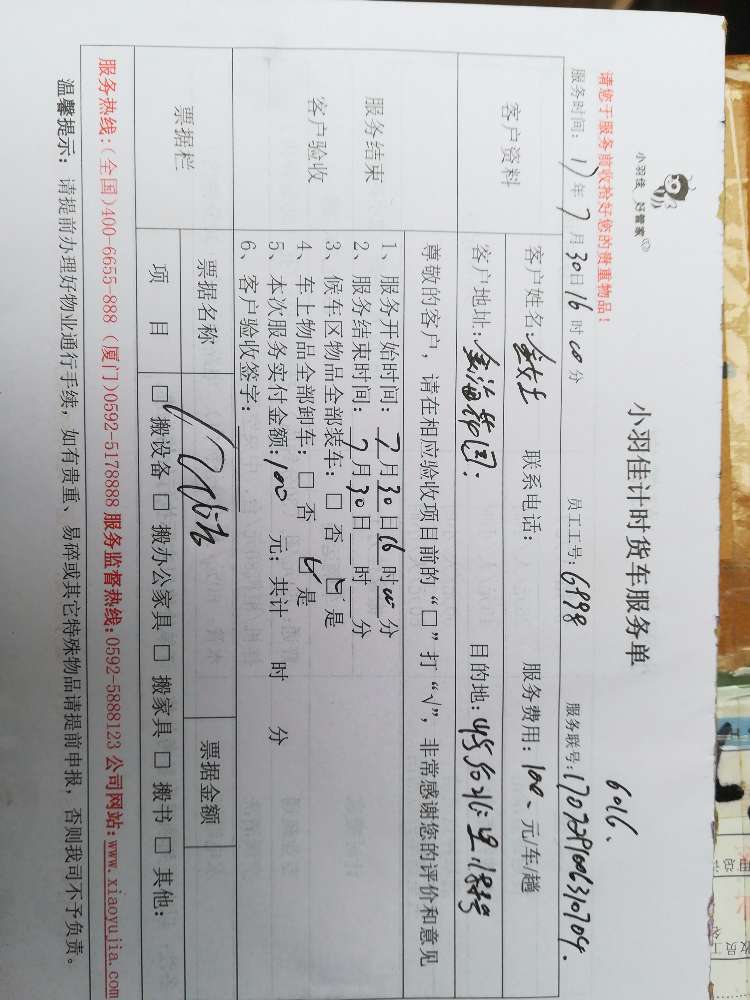 小羽佳 好管家
小羽佳计时货车服务单
6016、
请您于服务前收拾好您的贵重物品！
服务时间：17年7月30日16时00分 员工工号：6998 服务联号：
客户资料
客户姓名： 女士 联系电话： 服务费用：100、元/车/趟
客户地址：金海花园. 目的地：
服务结束
客户验收
尊敬的客户，请在相应验收项目前的“□”打“√”，非常感谢您的评价和意见
1、服务开始时间：7月30日16时00分
2、服务结束时间：7月30日 时 分
3、候车区物品全部装车：□ 否 ☑ 是
4、车上物品全部卸车：□ 否 ☑ 是
5、本次服务实付金额：100 元；共计 时 分
6、客户验收签字：
票据栏
票据名称 票据金额
项 目 □ 搬设备 □ 搬办公家具 □ 搬家具 □ 搬书 □ 其他：
服务热线：（全国）400-6655-888（厦门）0592-5178888 服务监督热线：0592-5888123 公司网站：www.xiaoyujia.com
温馨提示：请提前办理好物业通行手续，如有贵重、易碎或其它特殊物品请提前申报，否则我司不予负责。